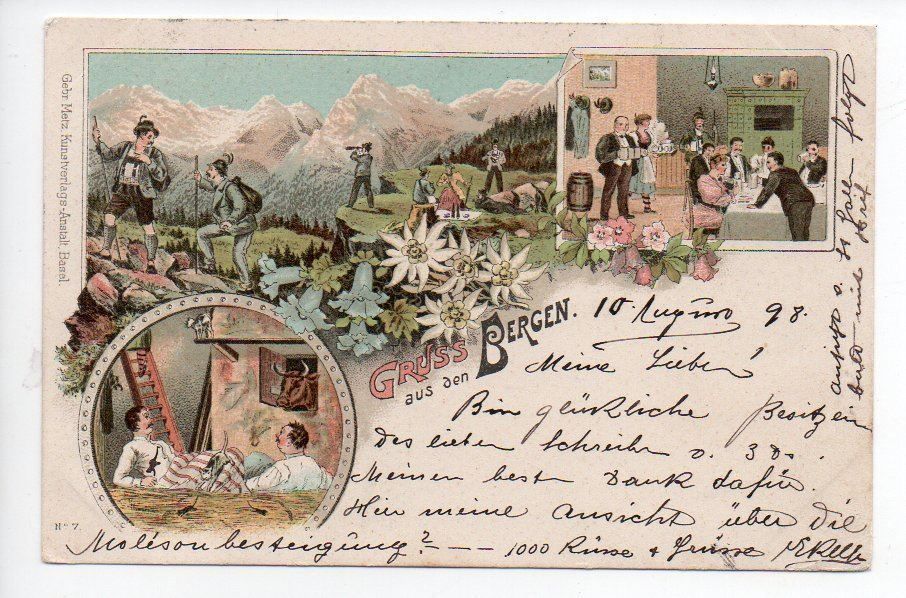 Gebr. Metz, Kunstverlags-Anstalt, Basel.
GRUSS
aus den
BERGEN.
10 August 98.
Meine Lieben!
Bin glückliche Besitzerin
des lieben Schreiben v. 3 ds.
Meinen besten Dank dafür.
Hier meine Ansicht über die
Moléson besteigung? — — 1000 Küsse & Grüsse
No 7.